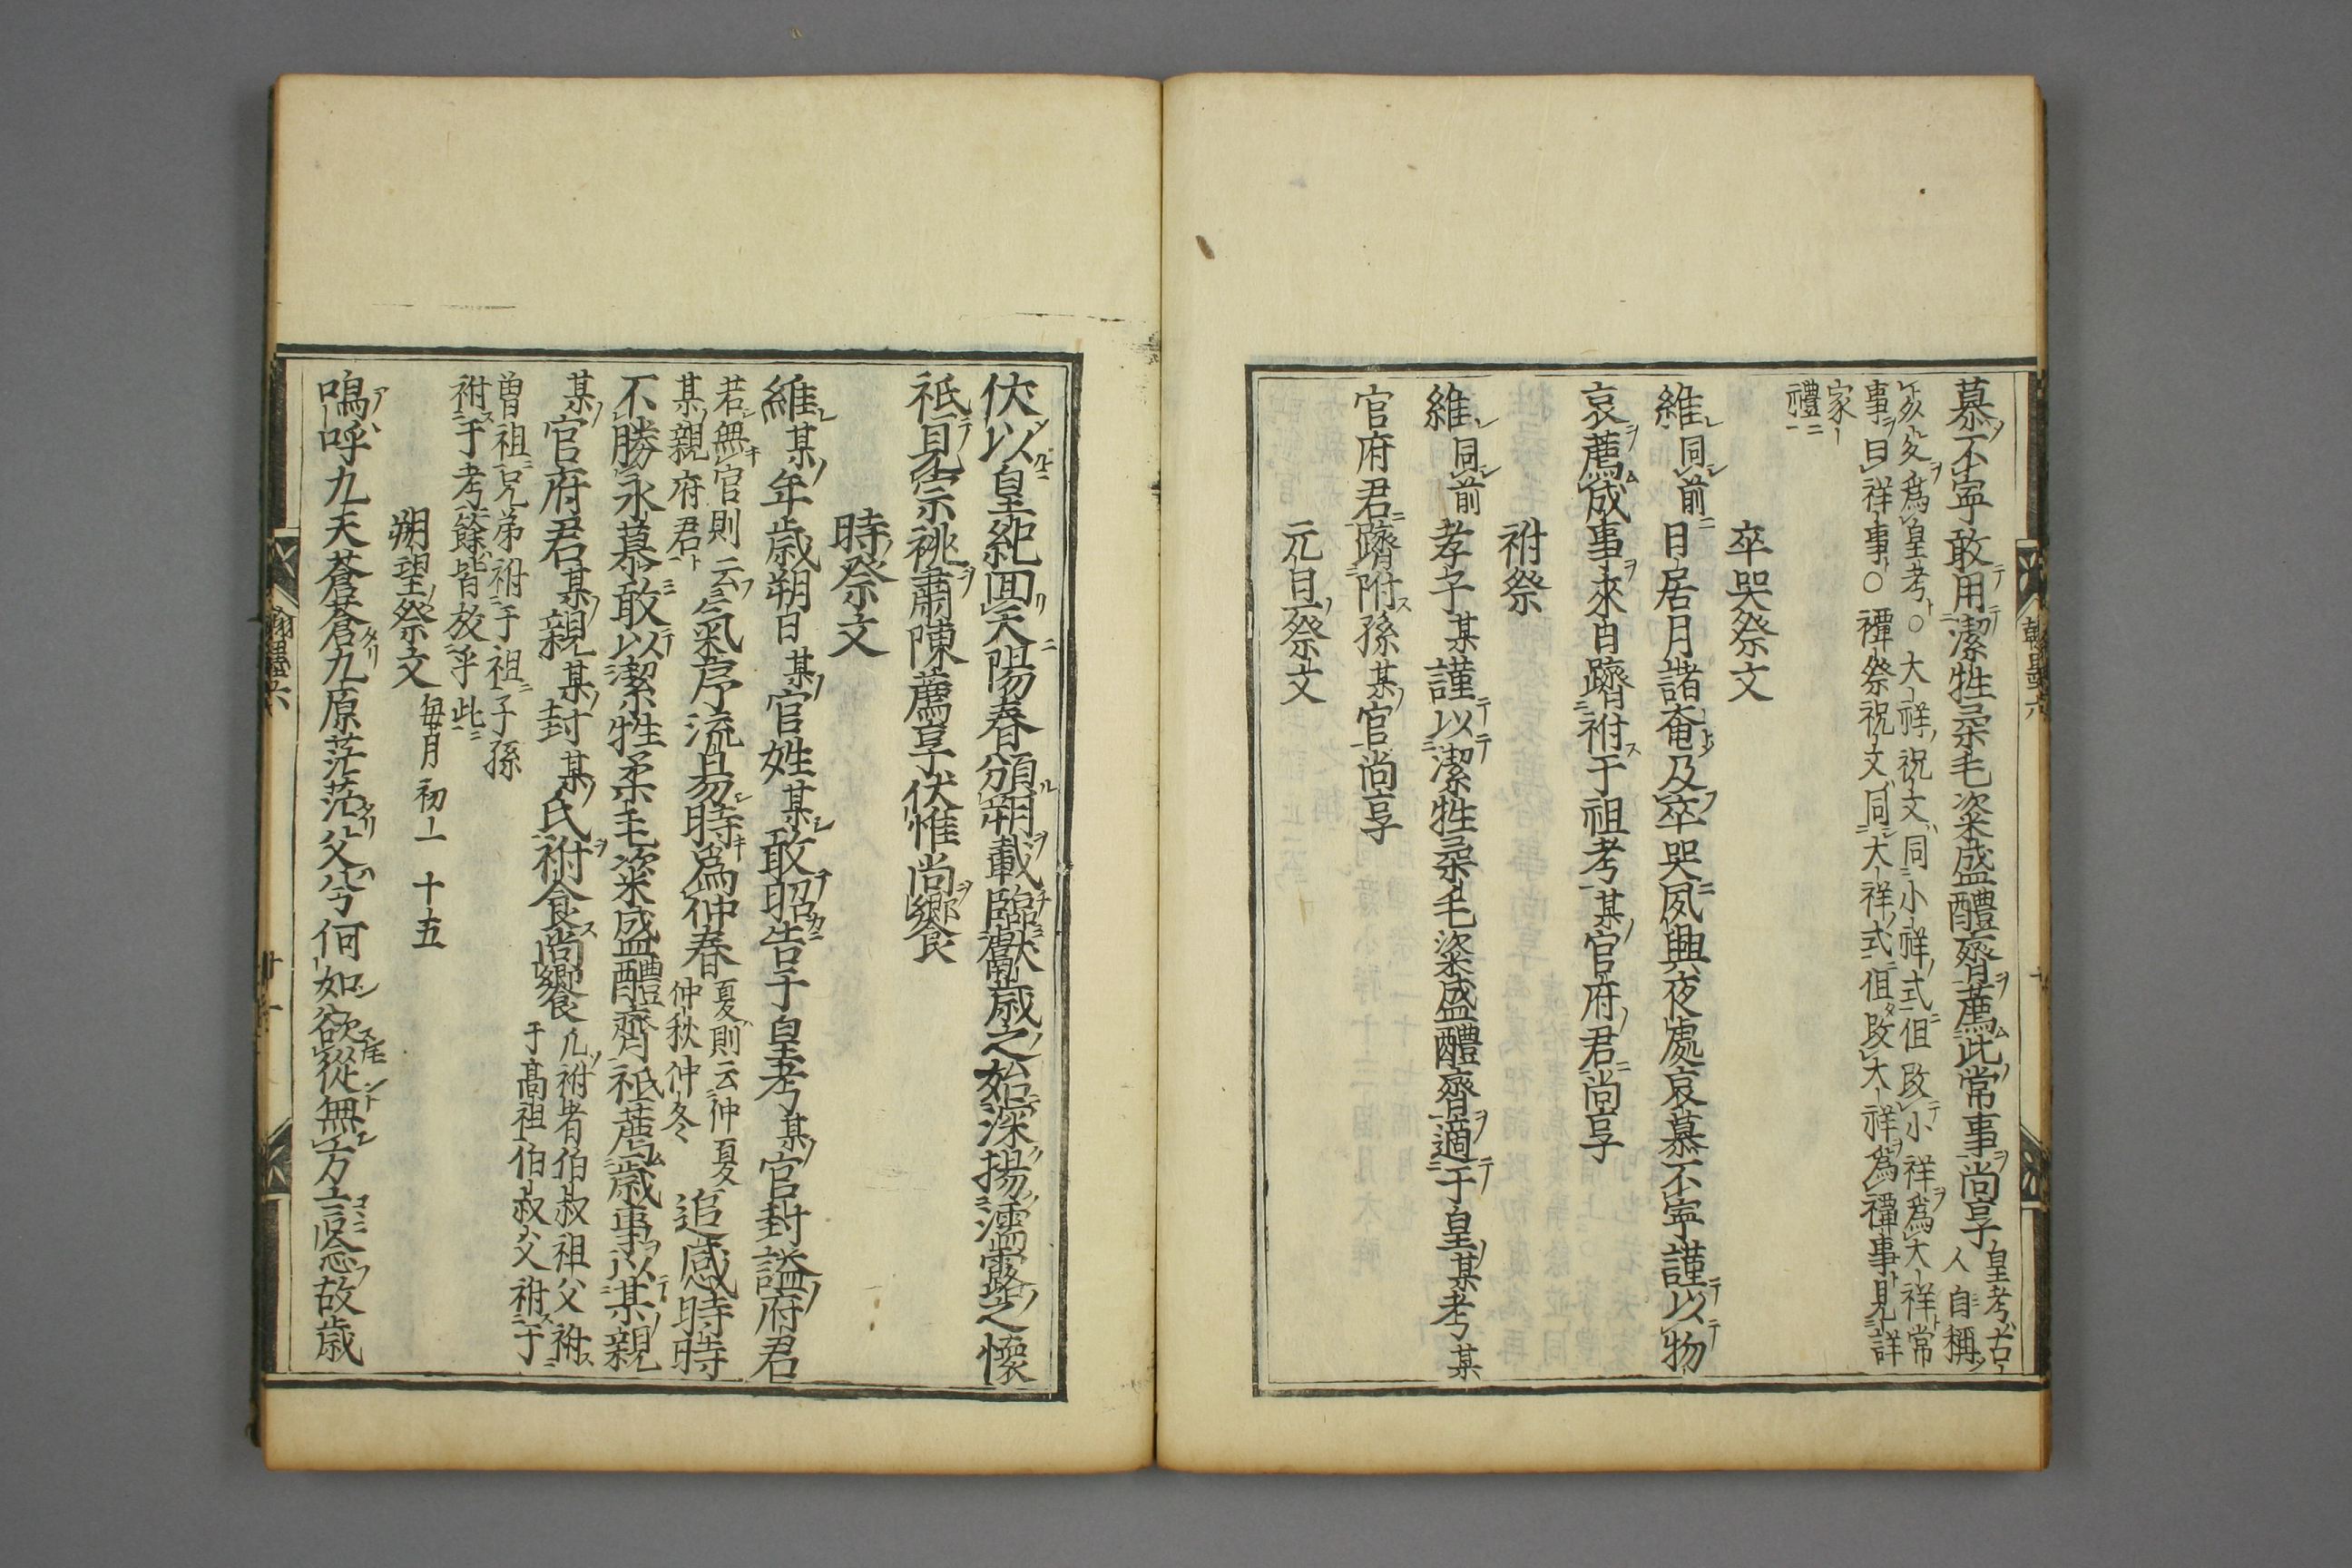 慕不寧敢用潔牲柔毛粢盛醴齊薦此常事尚享
皇考古
人自稱
亥父爲皇考○大祥祝文同小祥式但改小祥爲大祥常
事曰祥事○禫祭祝文同大祥式但改大祥爲禫事見詳
家
禮
卒哭祭文
維同前日居月諸奄及卒哭夙興夜處哀慕不寧謹以物
哀薦成事來自躋祔于祖考某官府君尚享
祔祭
維同前孝子某謹以潔牲柔毛粢盛醴齊適于皇某考某
官府君躋附孫某官尚享
元旦祭文
伏以皇紀回天陽春頒朔載臨獻歲之始深揚濡露之懷
祗見宗祧肅陳薦享伏惟尚饗
時祭文
維某年歲朔日某官姓某敢昭告于皇考某官封謚府君
若無官則云
某親府君
氣序流易時爲仲春
夏則云仲夏
仲秋仲冬
追感時時
不勝永慕敢以潔牲柔毛粢盛醴齊祗薦歲事以某親
某官府君某親某封某氏祔食尚饗
凡祔者伯叔祖父祔
于高祖伯叔父祔于
曾祖兄弟祔于祖子孫
祔于考餘皆放乎此
朔望祭文
每月初一十五
嗚呼九天蒼蒼九原茫茫父兮何如欲從無方言念故歲
翰墨六